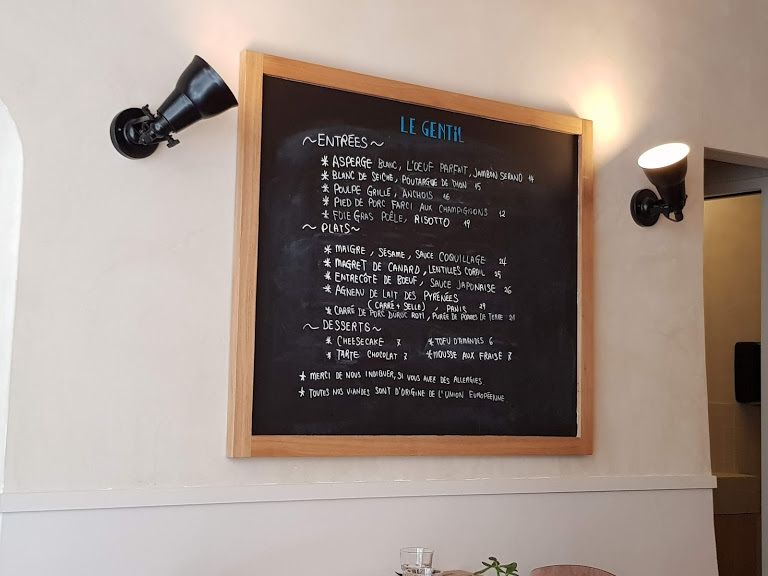 LE GENTIL
~ENTRÉES~
* ASPERGE BLANC, L'OEUF PARFAIT, JAMBON SERANO 14
* BLANC DE SEICHE, POUTARGUE DE THON 15
* POULPE GRILLE, ANCHOIS 16
* PIED DE PORC FARCI AUX CHAMPIGNONS 12
* FOIE GRAS POÊLE, RISOTTO 19
~PLATS~
* MAIGRE, SÉSAME, SAUCE COQUILLAGE 24
* MAGRET DE CANARD, LENTILLES CORAIL 25
* ENTRECÔTE DE BOEUF, SAUCE JAPONAISE 26
* AGNEAU DE LAIT DES PYRÉNÉES
(CARRÉ + SELLE), PANIS 29
* CARRÉ DE PORC DUROC ROTI, PURÉE DE POMMES DE TERRE
~DESSERTS~
* CHEESECAKE * TOFU D'AMANDES 6
* TARTE CHOCOLAT * MOUSSE AUX FRAISE 8
* MERCI DE NOUS INDIQUER, SI VOUS AVER DES ALLERGIES
* TOUTES NOS VIANDES SONT D'ORIGINE DE L'UNION EUROPÉENNE.